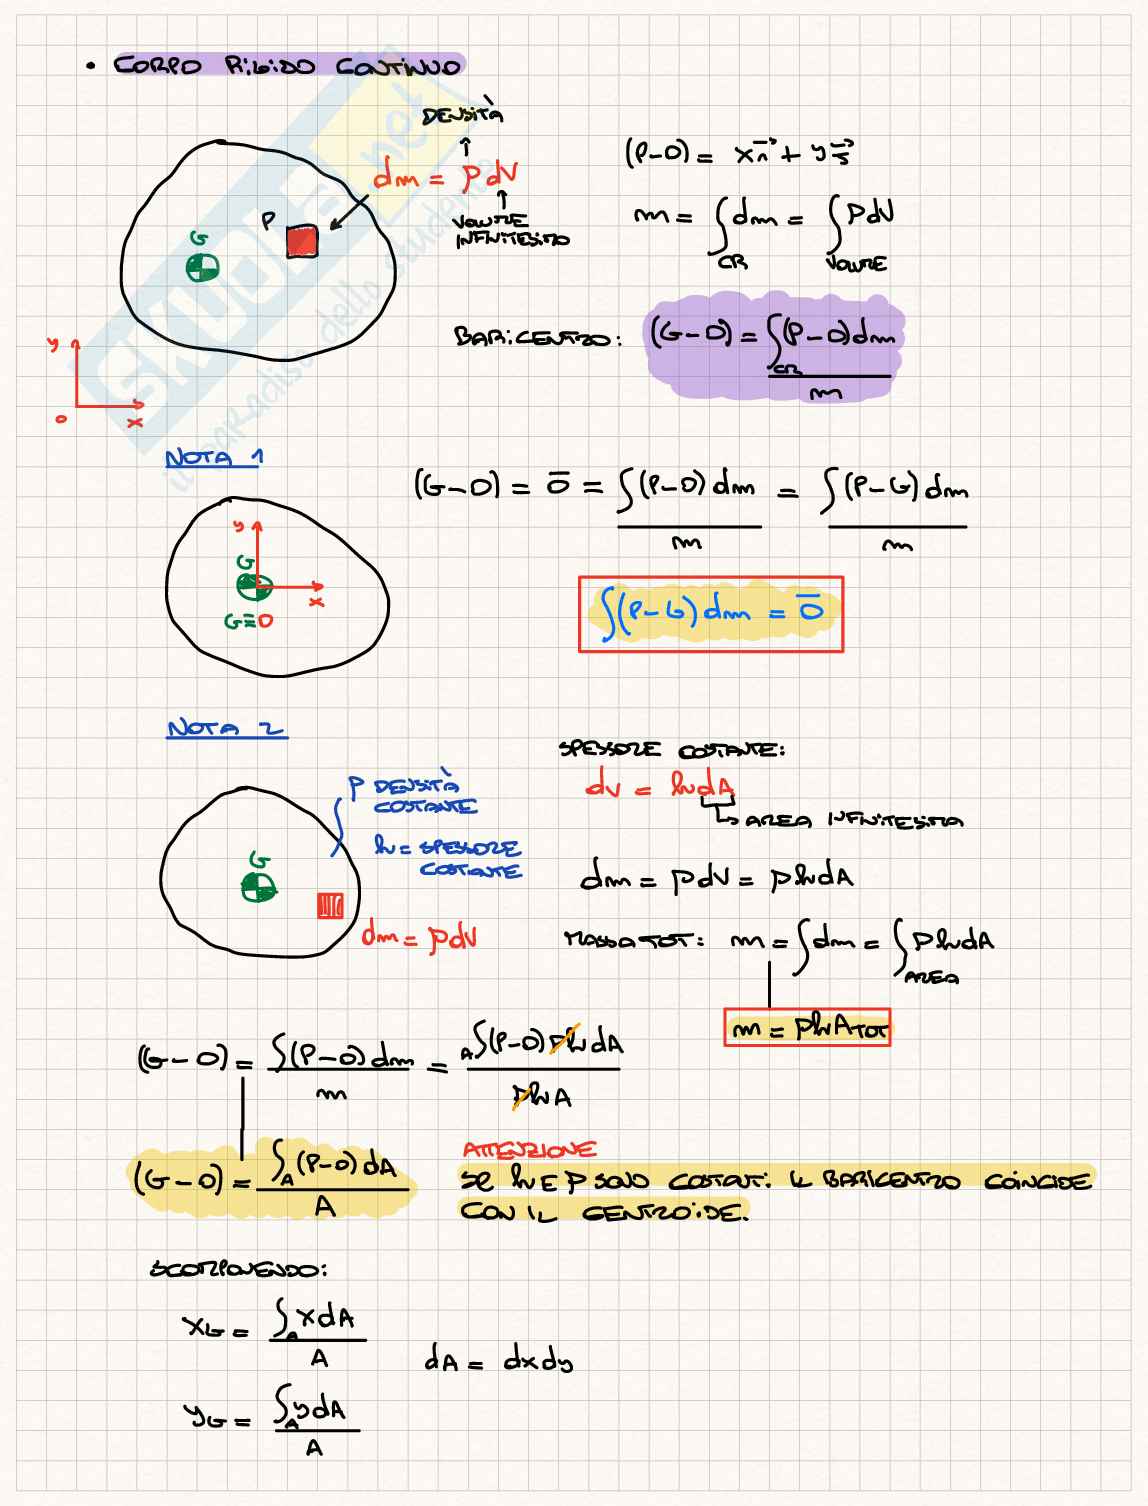 • CORPO RIGIDO CONTINUO
DENSITÀ
dm = ρ dV
VOLUME
INFINITESIMO
P
G
y
O
x
(P-O) = x n⃗ + y s⃗
m = ∫ dm = ∫ ρ dV
CR VOLUME
BARICENTRO: (G-O) = ∫ (P-O) dm
CR
m
NOTA 1
y
G
x
G≡O
(G-O) = 0̅ = ∫(P-O) dm = ∫(P-G) dm
m m
∫(P-G) dm = 0̅
NOTA 2
ρ DENSITÀ
COSTANTE
h = SPESSORE
COSTANTE
G
dm = ρdV
SPESSORE COSTANTE:
dV = h dA
AREA INFINITESIMA
dm = ρ dV = ρ h dA
MASSA TOT: m = ∫ dm = ∫ ρ h dA
AREA
m = ρ h A TOT
(G-O) = ∫(P-O) dm = A∫(P-O) ρ h dA
m ρ h A
(G-O) = ∫A (P-O) dA
A
ATTENZIONE
SE h E ρ SONO COSTANTI IL BARICENTRO COINCIDE
CON IL CENTROIDE.
SCOMPONENDO:
xG = ∫A x dA
A
dA = dx dy
yG = ∫A y dA
A
SKUOLA.net
il paradiso dello studente